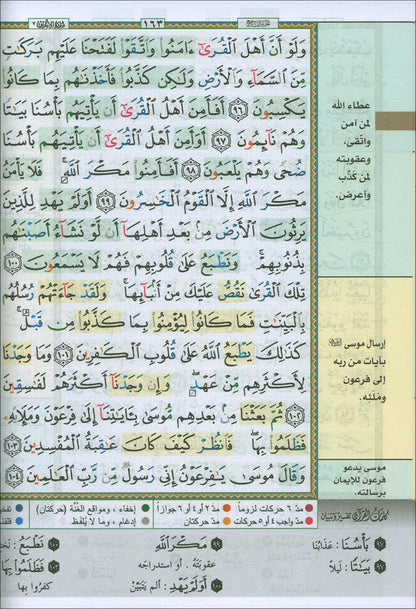 ١٦٣
وَلَوْ أَنَّ أَهْلَ ٱلْقُرَىٰٓ ءَامَنُوا۟ وَٱتَّقَوْا۟ لَفَتَحْنَا عَلَيْهِم بَرَكَٰتٍ
مِّنَ ٱلسَّمَآءِ وَٱلْأَرْضِ وَلَٰكِن كَذَّبُوا۟ فَأَخَذْنَٰهُم بِمَا كَانُوا۟
يَكْسِبُونَ ٩٦ أَفَأَمِنَ أَهْلُ ٱلْقُرَىٰٓ أَن يَأْتِيَهُم بَأْسُنَا بَيَٰتًا
وَهُمْ نَآئِمُونَ ٩٧ أَوَأَمِنَ أَهْلُ ٱلْقُرَىٰٓ أَن يَأْتِيَهُم بَأْسُنَا
ضُحًى وَهُمْ يَلْعَبُونَ ٩٨ أَفَأَمِنُوا۟ مَكْرَ ٱللَّهِ ۚ فَلَا يَأْمَنُ
مَكْرَ ٱللَّهِ إِلَّا ٱلْقَوْمُ ٱلْخَٰسِرُونَ ٩٩ أَوَلَمْ يَهْدِ لِلَّذِينَ
يَرِثُونَ ٱلْأَرْضَ مِنۢ بَعْدِ أَهْلِهَآ أَن لَّوْ نَشَآءُ أَصَبْنَٰهُم
بِذُنُوبِهِمْ ۚ وَنَطْبَعُ عَلَىٰ قُلُوبِهِمْ فَهُمْ لَا يَسْمَعُونَ ١٠٠
تِلْكَ ٱلْقُرَىٰ نَقُصُّ عَلَيْكَ مِنْ أَنۢبَآئِهَا ۚ وَلَقَدْ جَآءَتْهُمْ رُسُلُهُم
بِٱلْبَيِّنَٰتِ فَمَا كَانُوا۟ لِيُؤْمِنُوا۟ بِمَا كَذَّبُوا۟ مِن قَبْلُ ۚ
كَذَٰلِكَ يَطْبَعُ ٱللَّهُ عَلَىٰ قُلُوبِ ٱلْكَٰفِرِينَ ١٠١ وَمَا وَجَدْنَا
لِأَكْثَرِهِم مِّنْ عَهْدٍ ۖ وَإِن وَجَدْنَآ أَكْثَرَهُمْ لَفَٰسِقِينَ
١٠٢ ثُمَّ بَعَثْنَا مِنۢ بَعْدِهِم مُّوسَىٰ بِـَٔايَٰتِنَآ إِلَىٰ فِرْعَوْنَ وَمَلَإِي۟هِۦ
فَظَلَمُوا۟ بِهَا ۖ فَٱنظُرْ كَيْفَ كَانَ عَٰقِبَةُ ٱلْمُفْسِدِينَ ١٠٣
وَقَالَ مُوسَىٰ يَٰفِرْعَوْنُ إِنِّى رَسُولٌ مِّن رَّبِّ ٱلْعَٰلَمِينَ ١٠٤
عطاء الله
لمن آمن
واتقى،
وعقوبته
لمن كذّب
وأعرض.
إرسال موسى
بآيات من ربه
إلى فرعون
وملئه.
موسى يدعو
فرعون للإيمان
برسالته.
مدّ ٦ حركات لزوماً مدّ ٢ أو ٤ أو ٦ جوازاً إخفاء، ومواقع الغنّة (حركتان)
مدّ واجب ٤ أو ٥ حركات مدّ حركتان إدغام، وما لا يُلفظ
٩٧ بَأْسُنَا : عَذَابُنَا
٩٧ بَيَٰتًا : لَيلاً
٩٩ مَكْرَ ٱللَّهِ
عقوبَتَهُ . أو استدراجه
١٠٠ أَوَلَمْ يَهْدِ : ألم يتبيّن
كفروا بها